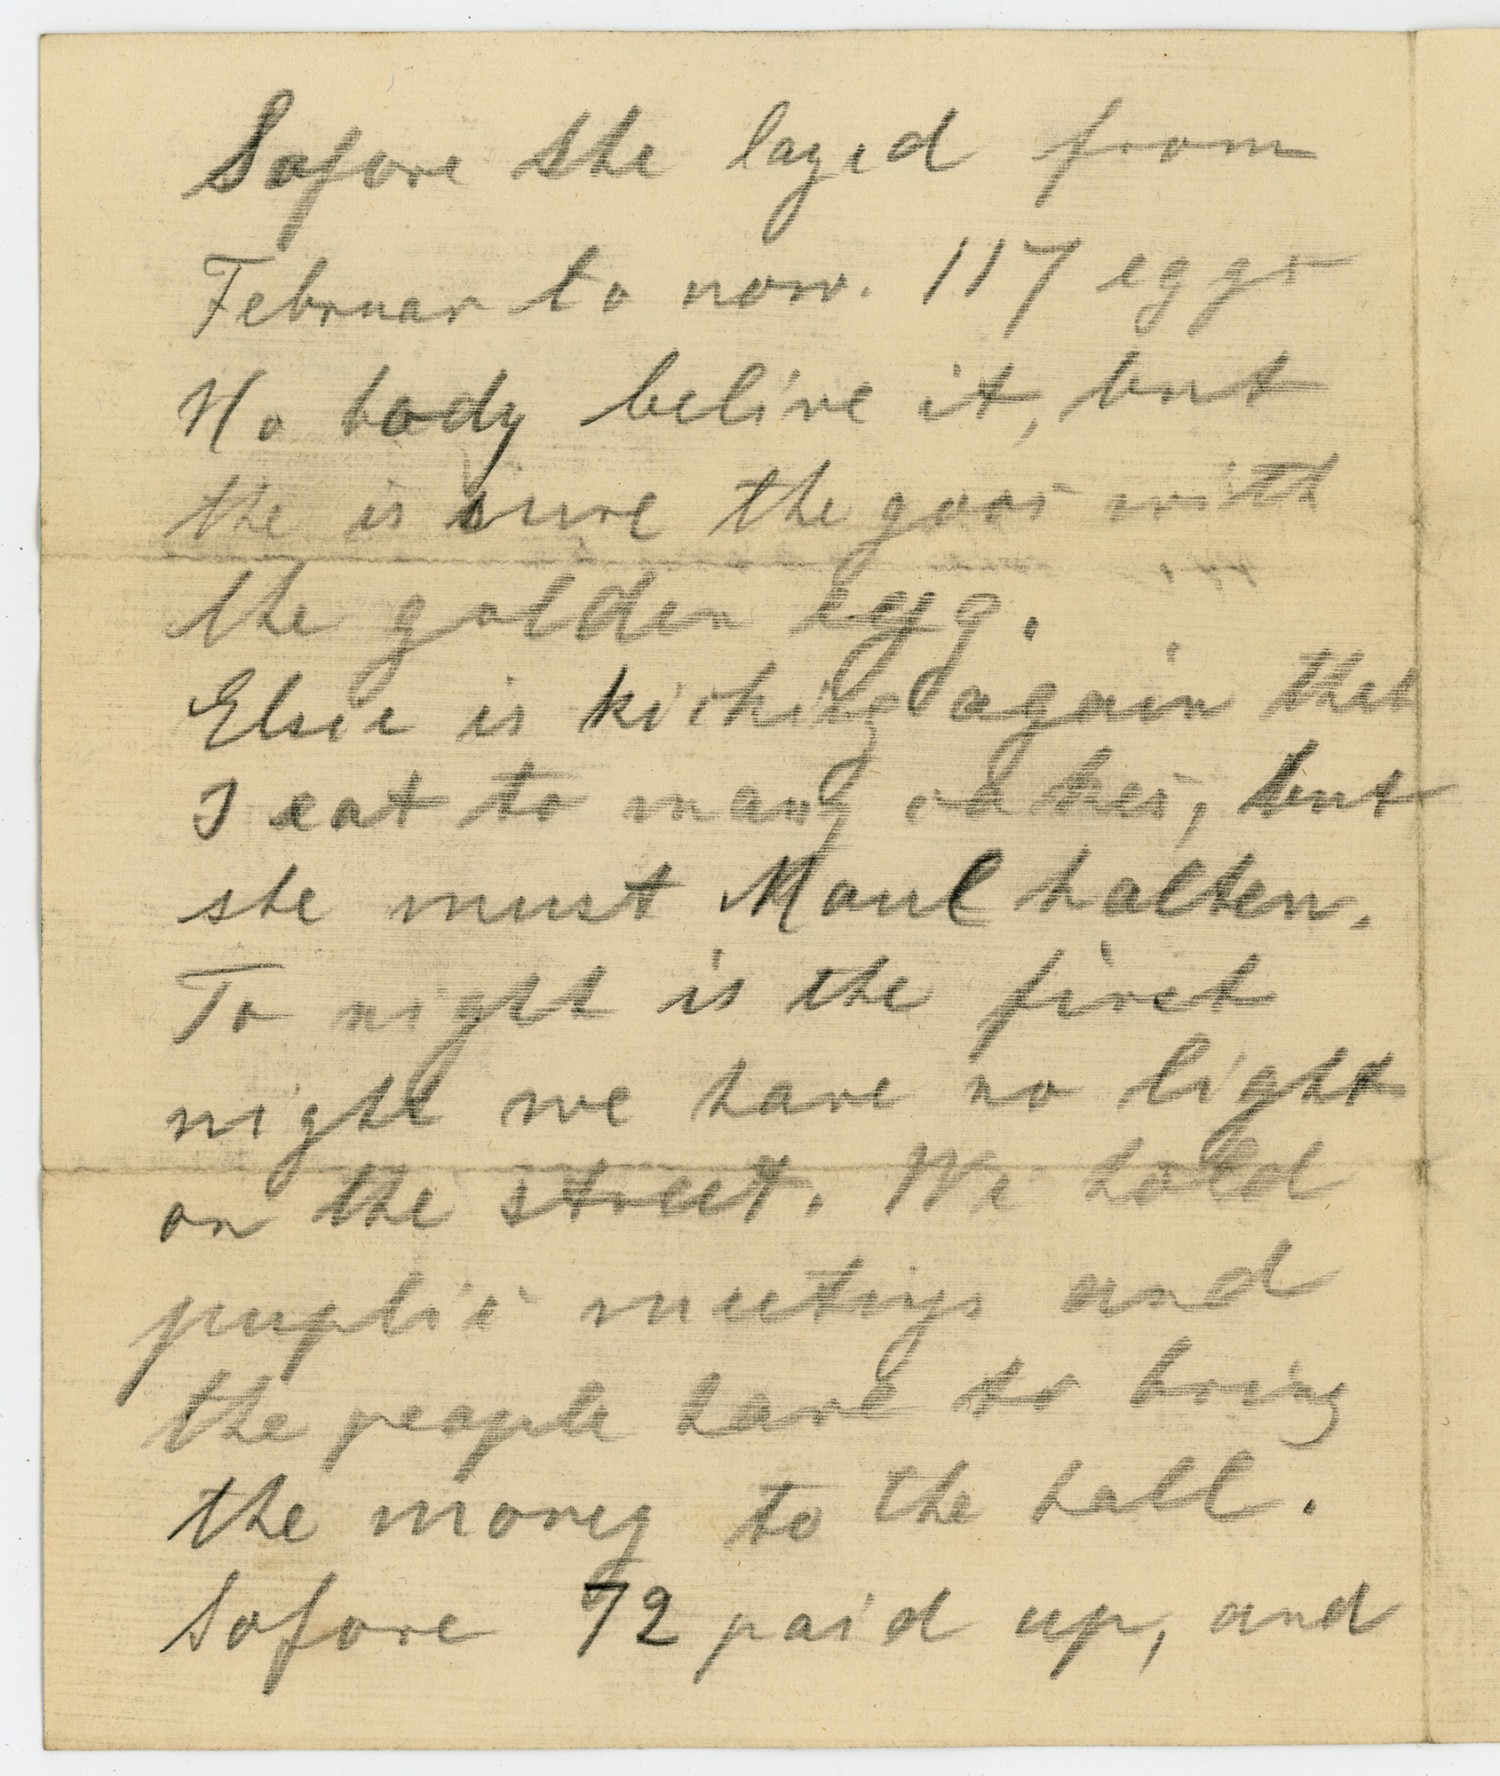 Sofore she layed from
Februar to now. 117 eggs
No body belive it, but
the is sure the goos with
the golden egg.
Elsie is kicking again that
I eat to many cakes, but
she must Maul halten.
To night is the first
night we have no light
on the street. We hold
puplic meetings and
the people have to bring
the money to the hall.
Sofore 72 paid up, and